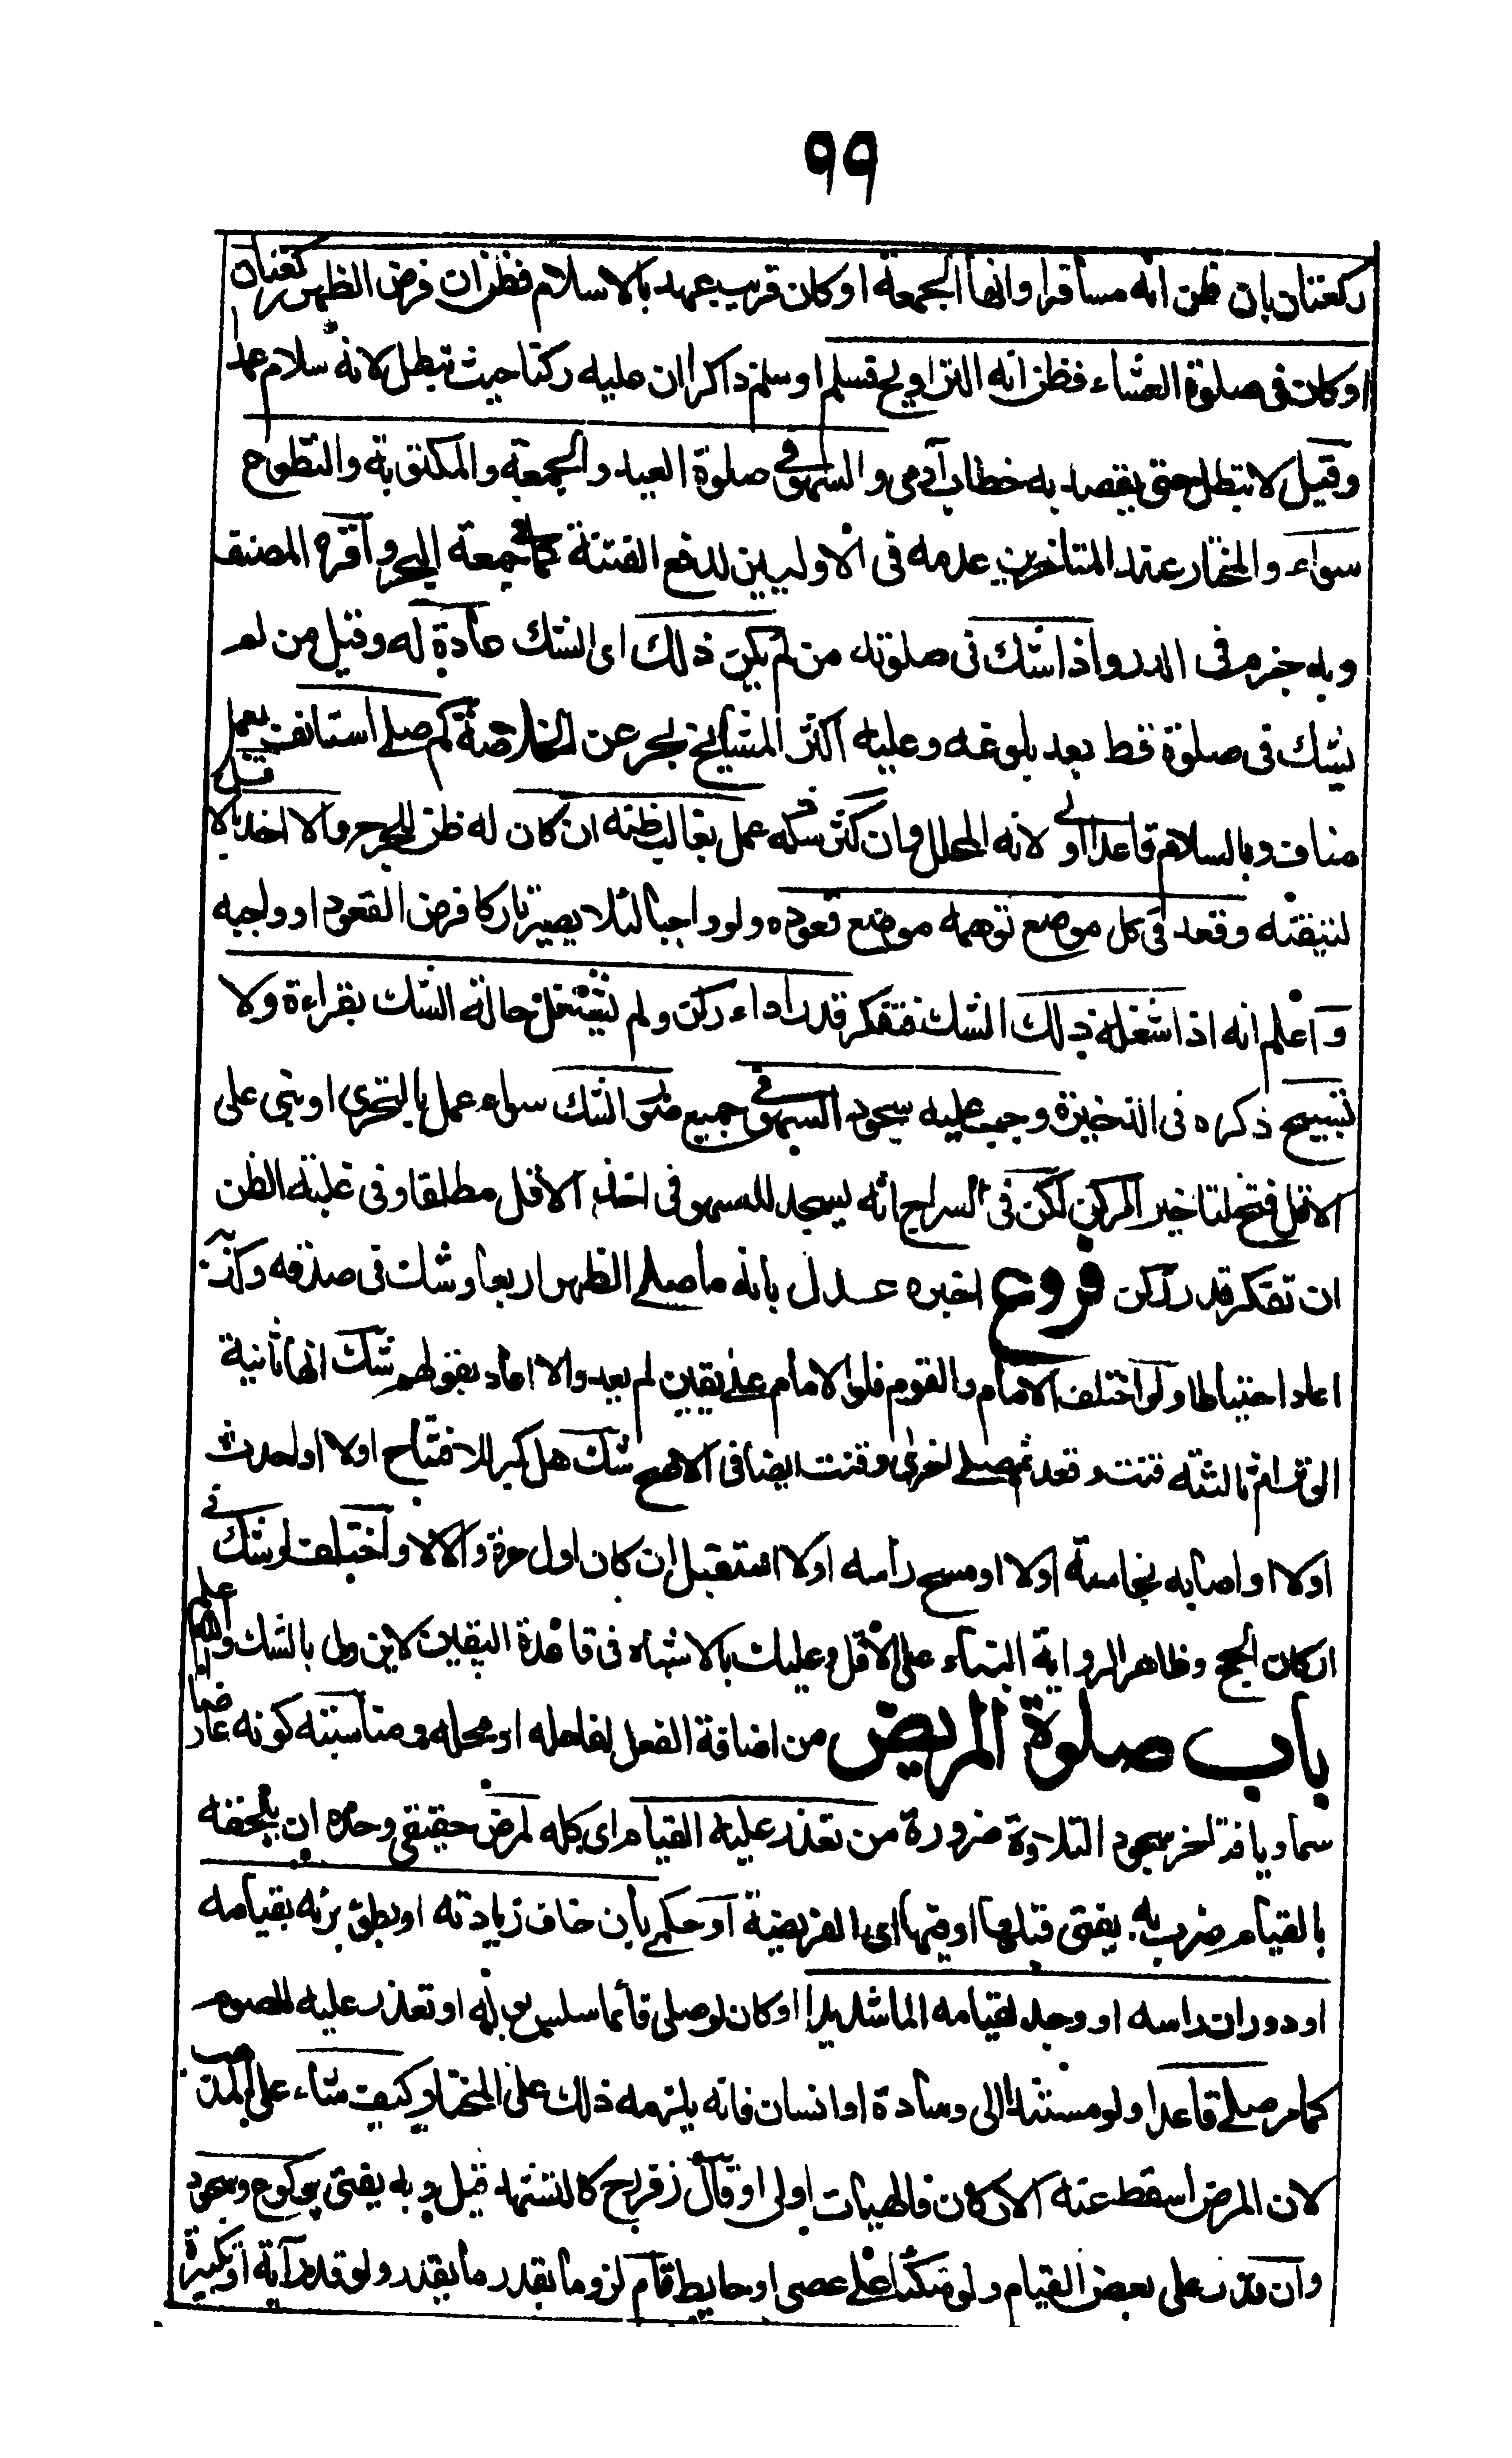 ٩٩
ركعتان بان ظن انه مسافرا وانها الجمعة او كان قريب عهد بالاسلام فظن ان فرض الظهر ركعتان
او كان فى صلوة العشاء فظن انه التراويح فسلم او سلم ذاكرا ان عليه ركنا حيث تبطل لانه سلام عمدا
وقيل لا تبطل حتى يقصد به خطاب آدمى والسهو فى صلوة العيد والجمعة والمكتوبة والتطوع
سواء والمختار عند المتاخرين عدمه فى الاوليين لدفع الفتنة كما فى جمعة البحر واقره المصنف
وبه جزم فى الدرر واذا شك فى صلوته من لم يكن ذلك اى الشك عادة له وقيل من لم
يشك فى صلوة قط بعد بلوغه وعليه اكثر المشايخ بحر عن الخلاصة كم صلى استانف بعمل
مناف وبالسلام قاعدا اولى لانه المحلل وان كثر شكه عمل بغالب ظنه ان كان له ظن للحرج والا اخذ بالاقل
لتيقنه وقعد فى كل موضع توهمه موضع قعوده ولو واجبا لئلا يصير تاركا فرض القعود او واجبه
واعلم انه اذا شغله ذلك الشك فتفكر قدر اداء ركن ولم يشتغل حالة الشك بقراءة ولا
تسبيح ذكره فى الذخيرة وجب عليه سجود السهو فى جميع صور الشك سواء عمل بالتحرى او بنى على
الاقل فتح لتاخير الركن لكن فى السراج انه يسجد للسهو فى اخذ الاقل مطلقا وفى غلبة الظن
ان تفكر قدر ركن فروع اخبره عدل بانه ما صلى الظهر اربعا وشك فى صدقه وكذبه
اعاد احتياطا ولو اختلف الامام والقوم فلو الامام على يقين لم يعد والا اعاد بقولهم شك انها ثانية
الوتر ام ثالثته قنت وقعد ثم صلى اخرى وقنت ايضا فى الاصح شك هل كبر للافتتاح اولا او احدث
اولا او اصابه نجاسة اولا او مسح راسه اولا استقبل ان كان اول مرة والا لا واختلف لو شك فى
اركان الحج وظاهر الرواية البناء على الاقل وعليك بالاشباه فى قاعدة اليقين لا يزول بالشك والله اعلم
باب صلوة المريض من اضافة الفعل لفاعله او محله ومناسبته كونه عارضا
سماويا فتاخر سجود التلاوة ضرورة من تعذر عليه القيام اى كله لمرض حقيقى وحده ان يلحقه
بالقيام ضرر به يفتى قبلها او فيها اى الفريضة او حكمى بان خاف زيادته او بطؤ برئه بقيامه
او دوران راسه او وجد لقيامه الما شديدا او كان لو صلى قائما سلس بوله او تعذر عليه الصوم
كما مر صلى قاعدا ولو مستندا الى وسادة او انسان فانه يلزمه ذلك على المختار كيف شاء على المذهب
لان المرض اسقط عنه الاركان فالهيات اولى وقال زفر رح كالمتشهد قيل وبه يفتى بركوع وسجود
وان قدر على بعض القيام ولو متكئا على عصى او حايط قام لزوما بقدر ما يقدر ولو قدر آية او تكبيرة